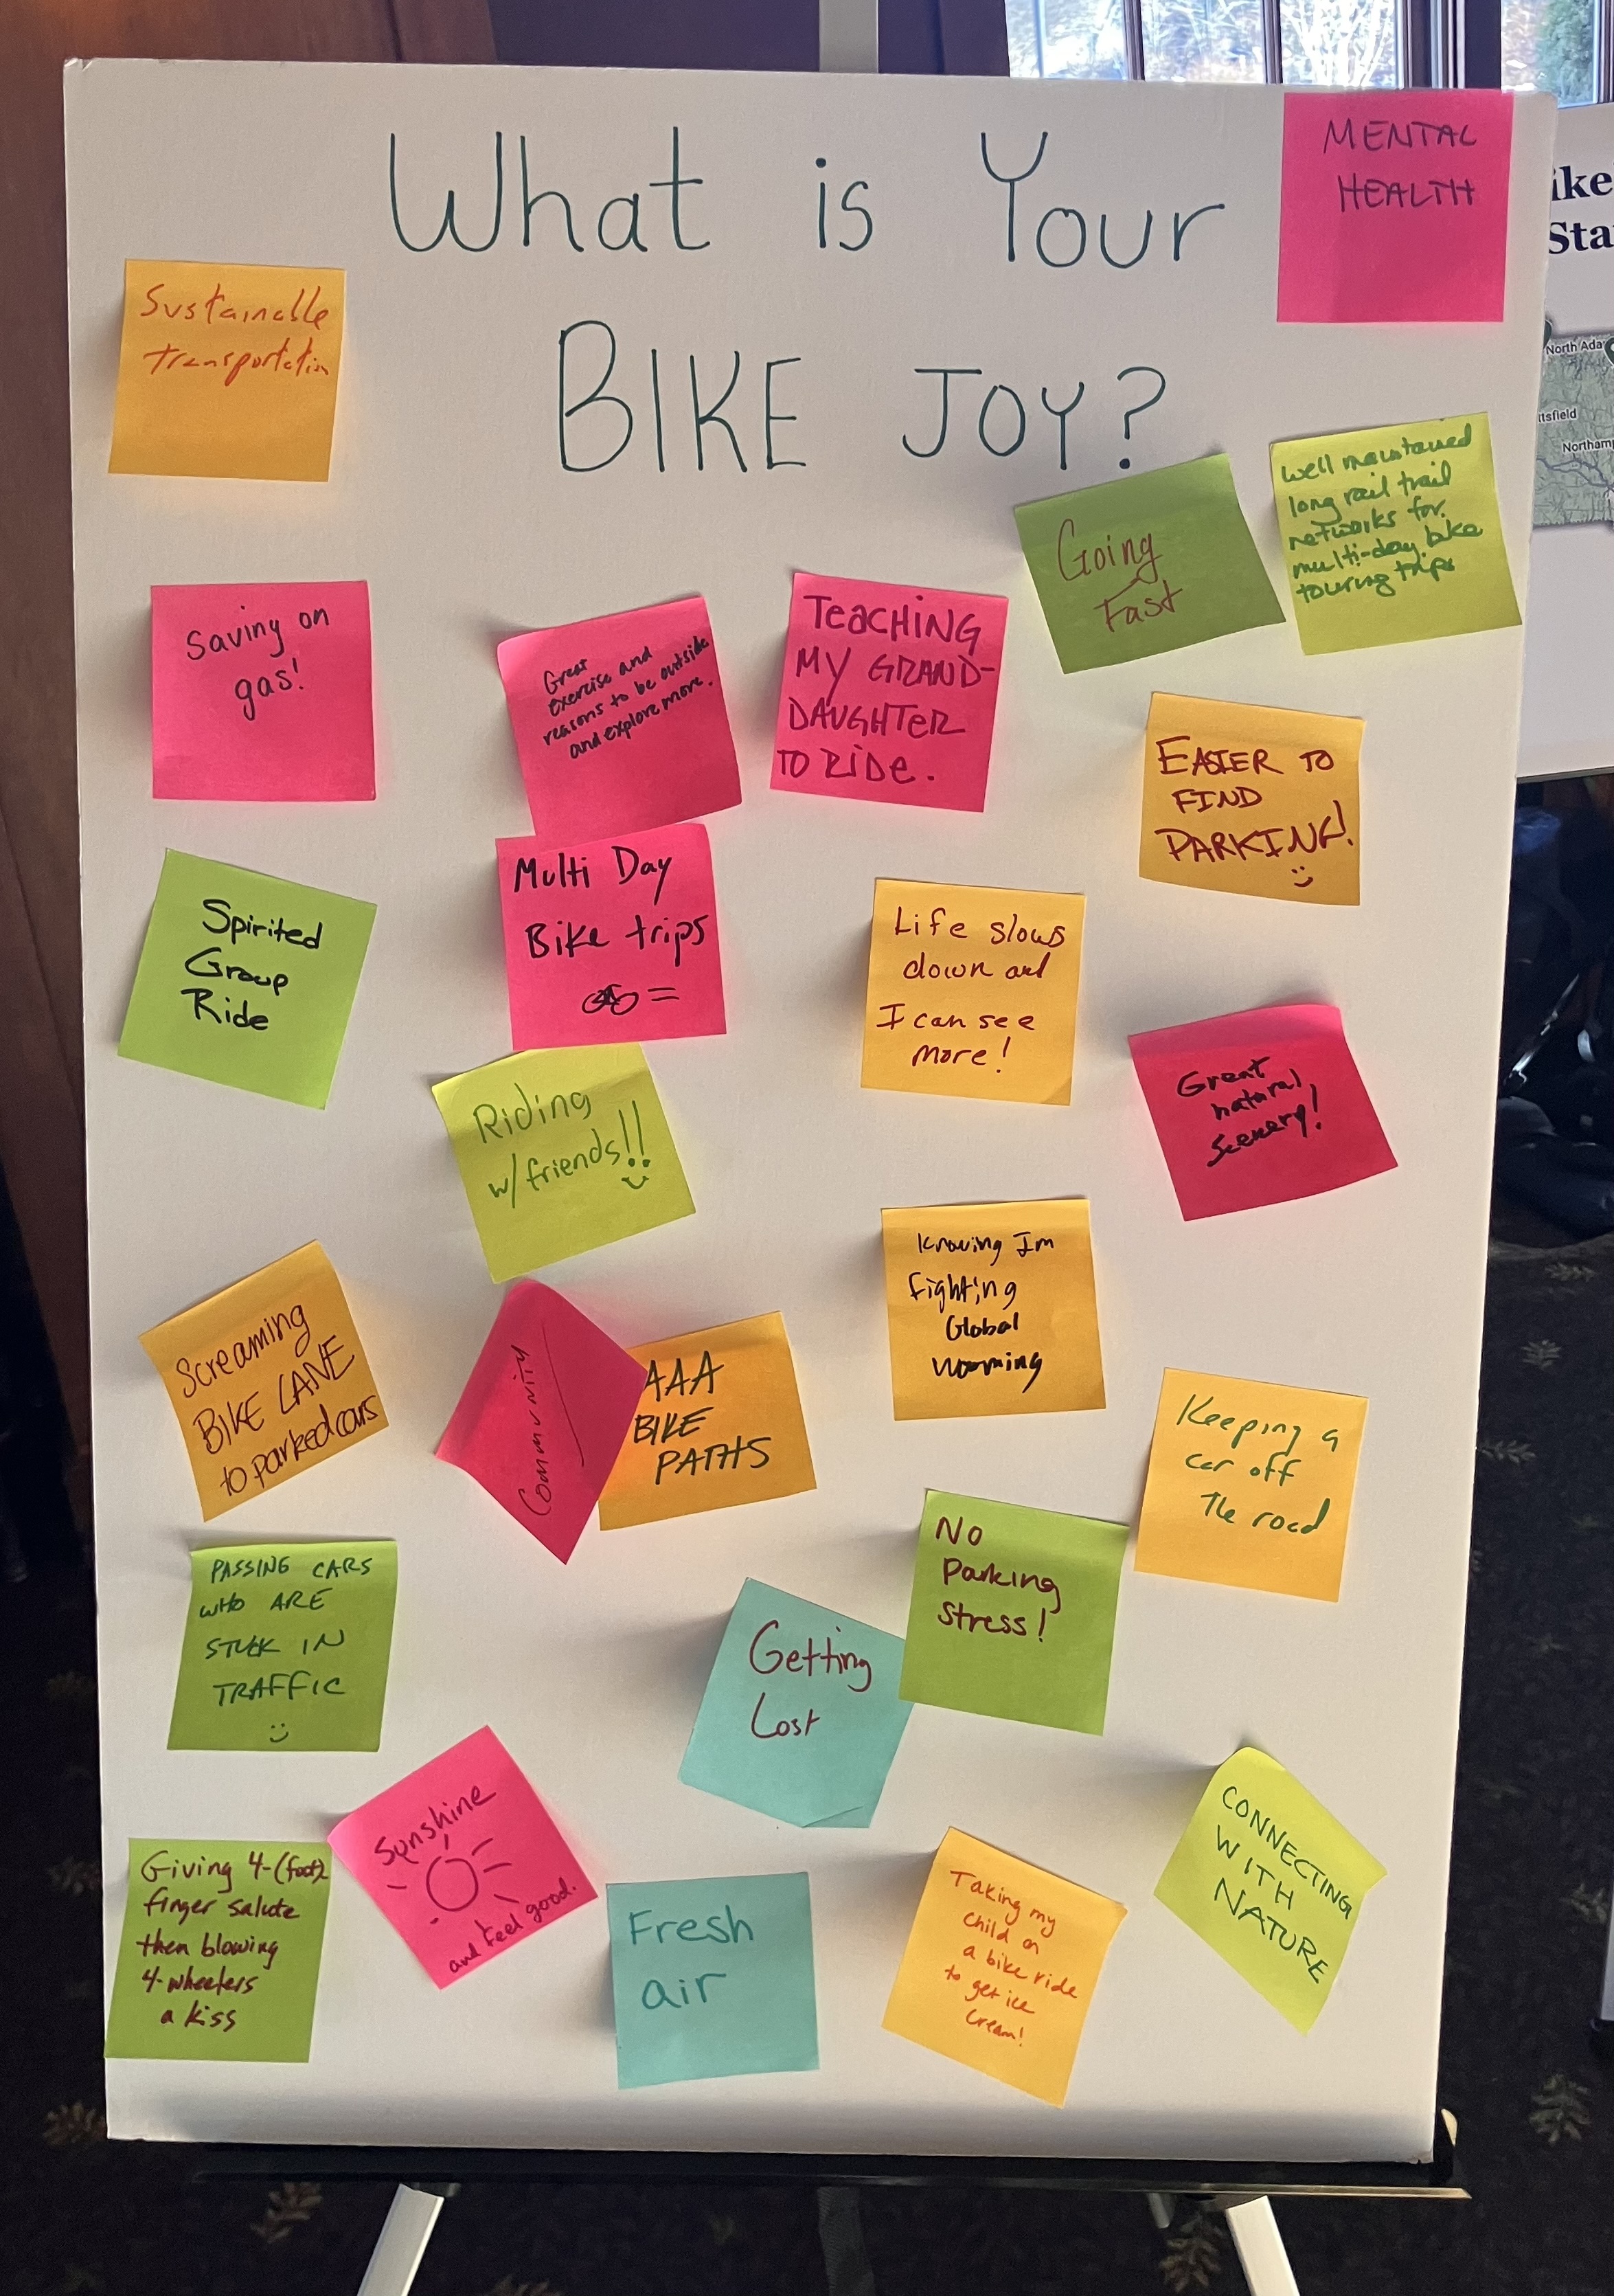 What is Your
BIKE JOY?
MENTAL
HEALTH
Sustainable
transportation
Going
Fast
well maintained
long rail trail
networks for
multi-day bike
touring trips
Saving on
gas!
Great
exercise and
reasons to be outside
and explore more.
TEACHING
MY GRAND-
DAUGHTER
TO RIDE.
EASIER TO
FIND
PARKING!
Spirited
Group
Ride
Multi Day
Bike trips
Life slows
down and
I can see
more!
Great
natural
scenery!
Riding
w/friends!!
Knowing Im
fighting
Global
warming
Screaming
BIKE LANE
to parked cars
Community
AAA
BIKE
PATHS
Keeping a
car off
the road
PASSING CARS
WHO ARE
STUCK IN
TRAFFIC
Getting
Lost
No
Parking
Stress!
Sunshine
and feel good.
Giving 4-(foot)
finger salute
then blowing
4-wheelers
a kiss
Fresh
air
Taking my
child on
a bike ride
to get ice
cream!
CONNECTING
WITH
NATURE
ike
Sta
North Ada
ttsfield
Northam